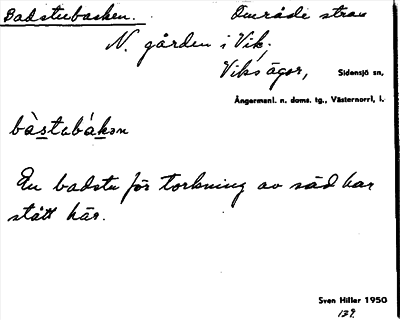 Badstubacken. Område strax
N. gården i Vik,
Viks ägor, Sidensjö sn,
Ångermanl. n. doms. tg., Västernorrl, l.
bàstabákən
En badstu för torkning av säd har
stått här.
Sven Hiller 1950
139.